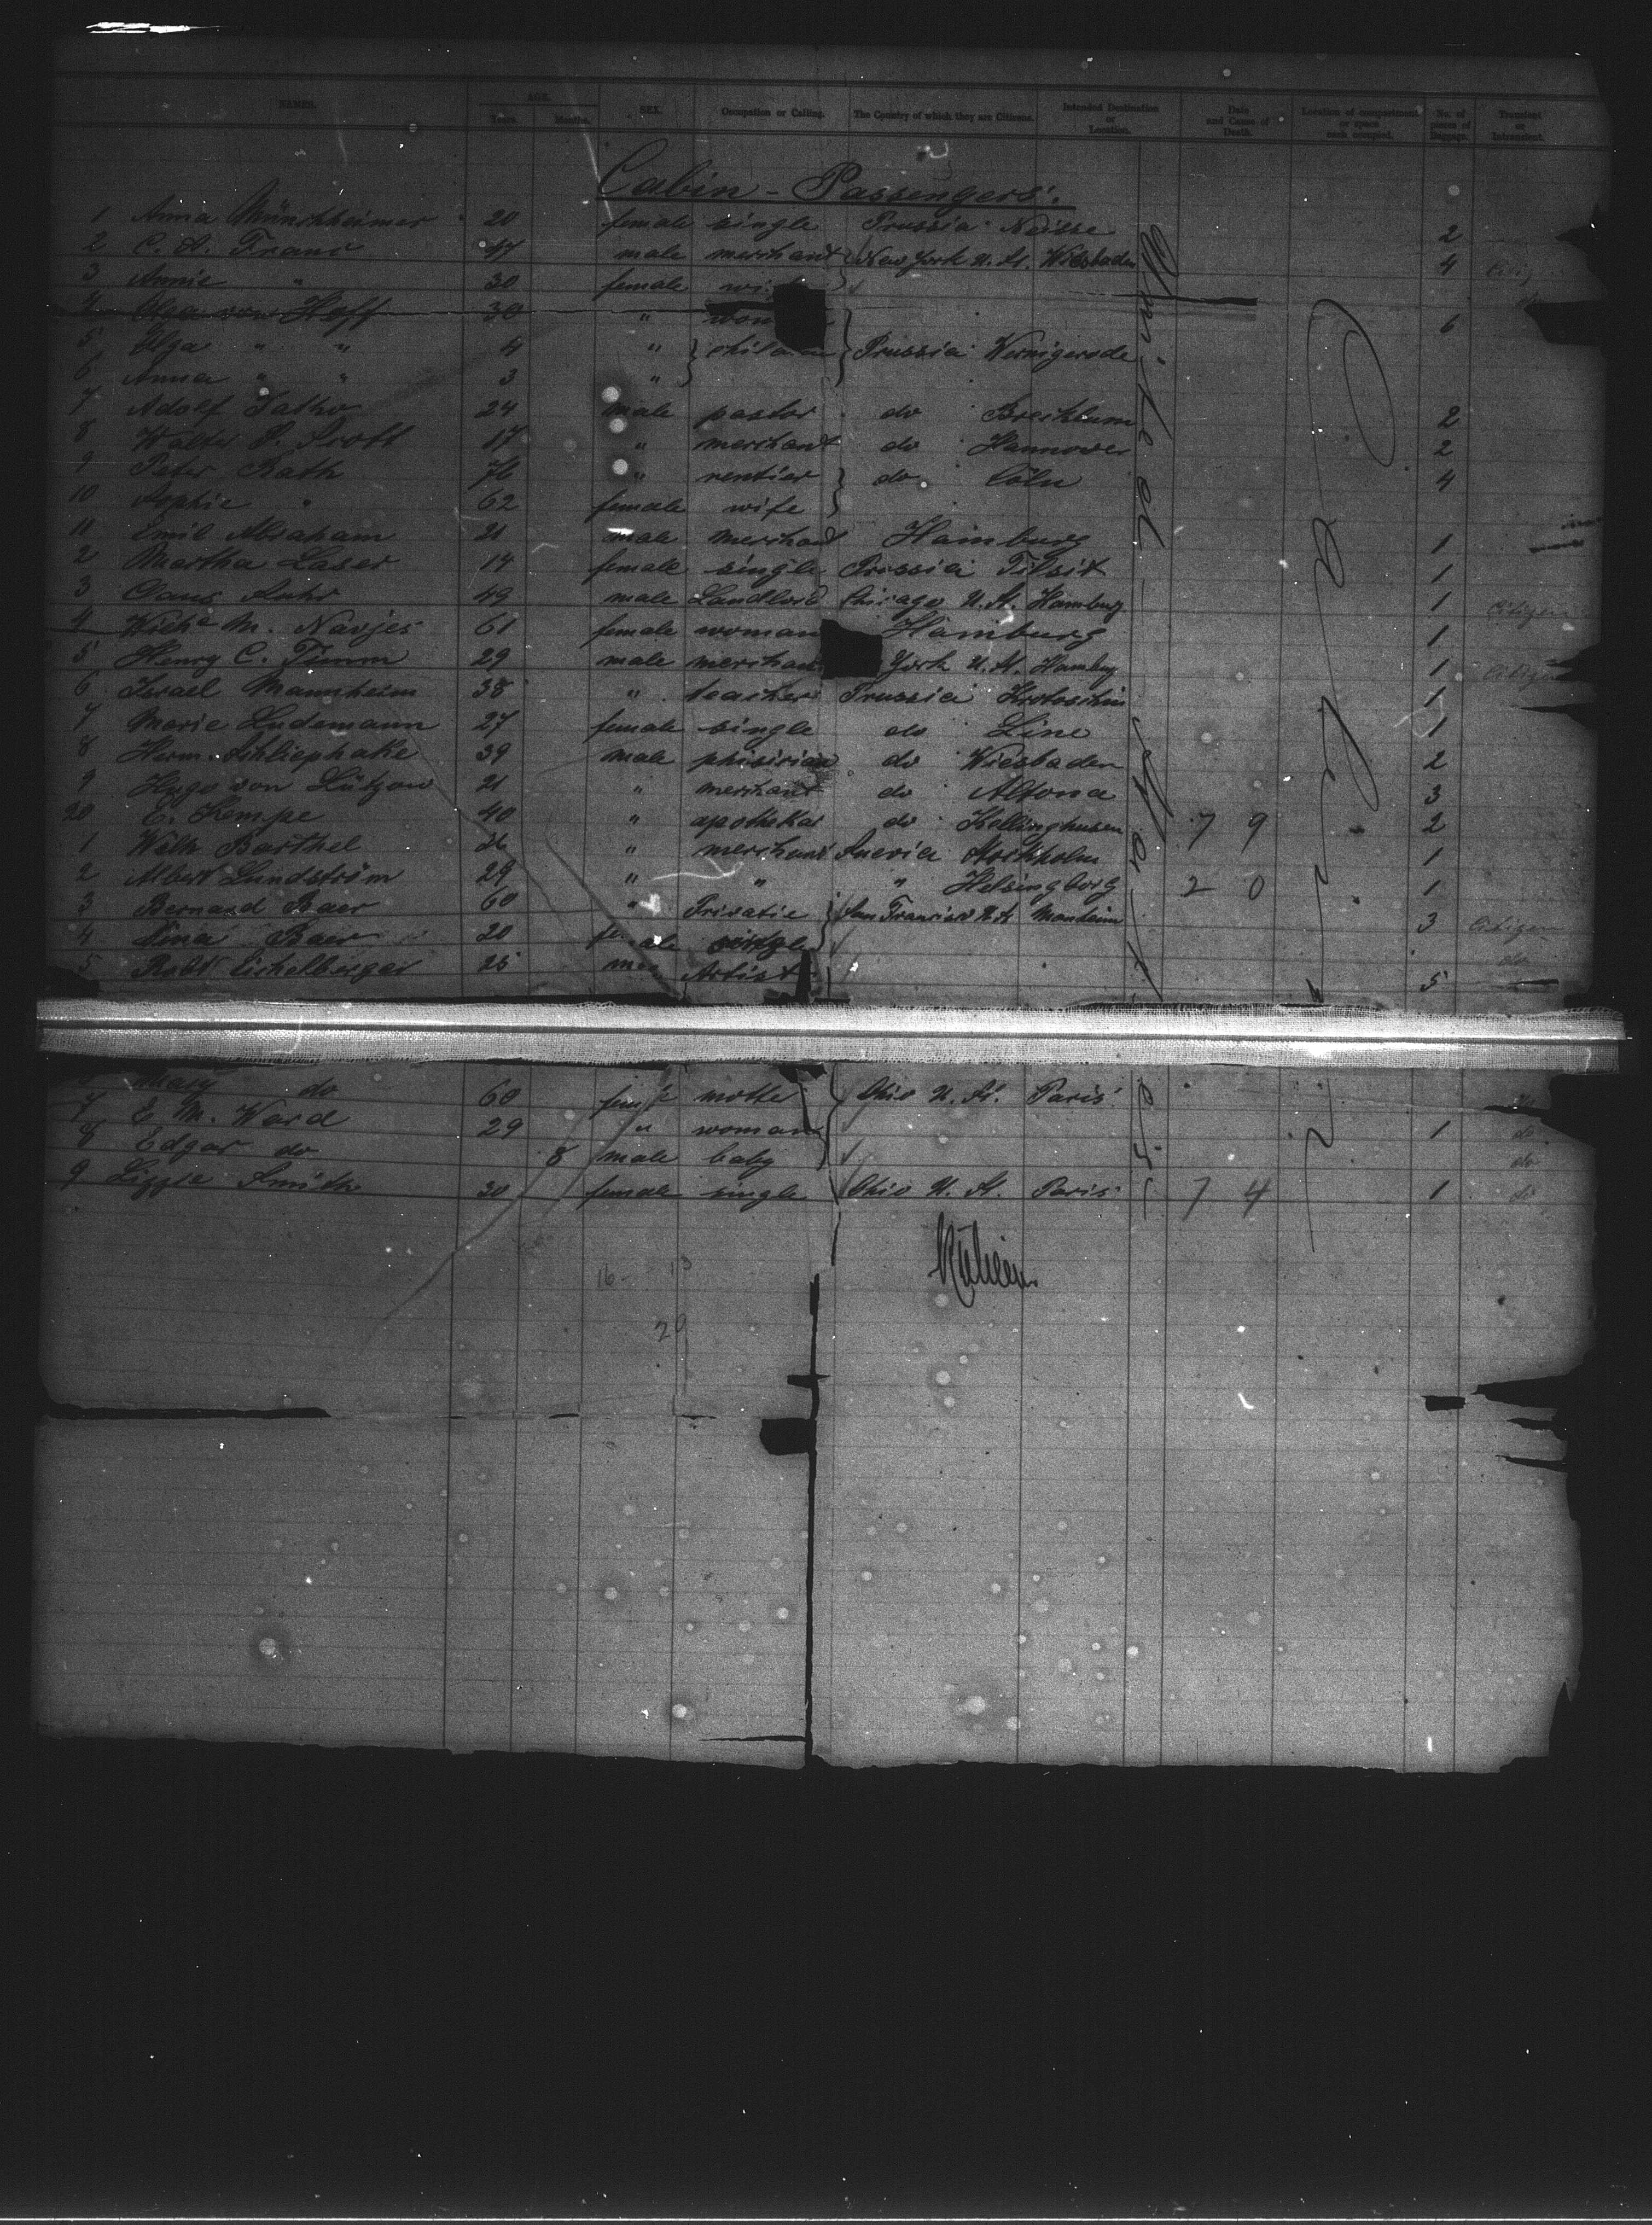 NAMES. AGE. Years. Months. SEX. Occupation or Calling. The Country of which they are Citizens. Intended Destination or Location. Date and Cause of Death. Location of compartment or space each occupied. No. of pieces of Baggage. Transient or Intransient.
Cabin - Passengers.
1 Anna Münchheimer 20 female single Prussia Neisse 2
2 C. A. Franc 47 male merchant New York U. St. Wiesbaden 4
3 Annie " 30 female
4 Olga von Hoff 30 " 6
5 Olga " " 4 " Prussia Wernigerode
6 Anna " " 3 "
7 Adolf Jatho 24 male pastor do Breiklum 2
8 Walter S. Scott 17 " merchant do Hannover 2
9 Peter Rath 76 " rentier do Cöln 4
10 Sophie " 62 female wife
11 Emil Abraham 21 male merchant Hamburg 1
2 Martha Laser 14 female single Prussia Tilsit 1
3 Claus Suhr 49 male Landlord Chicago U. St. Hamburg 1 Citizen
4 M. Navjes 61 female woman Hamburg 1
5 Henry C. Timm 29 male merchant York U. St. Hamburg 1
6 Israel Mannheim 38 " teacher Prussia Krotoschin 1
7 Marie Ludemann 27 female single do Line 1
8 Herm. Schliephake 39 male phisician do Wiesbaden 2
9 Hugo von Lützow 21 " merchant do Altona 3
20 E. Kempe 40 " apotheker do Kellinghusen 7 9 2
1 Barthel 26 " merchant Suecia Stockholm 1
2 Albert Lundström 29 " " " Helsingborg 2 0 1
3 Bernard Baer 60 " Privatie San Francisco U. St. Manheim 3 Citizen
4 Lina Baer 20 female single do
5 Robt Eichelberger 25 Artist 5
Mary do 60 mother Ohio U. St. Paris
7 E. M. Ward 29 " woman 1 do
8 Edgar do 8 male baby do
9 Lizzie Smith 30 female single Ohio U. St. Paris 7 4 1 do
16 - 13
29